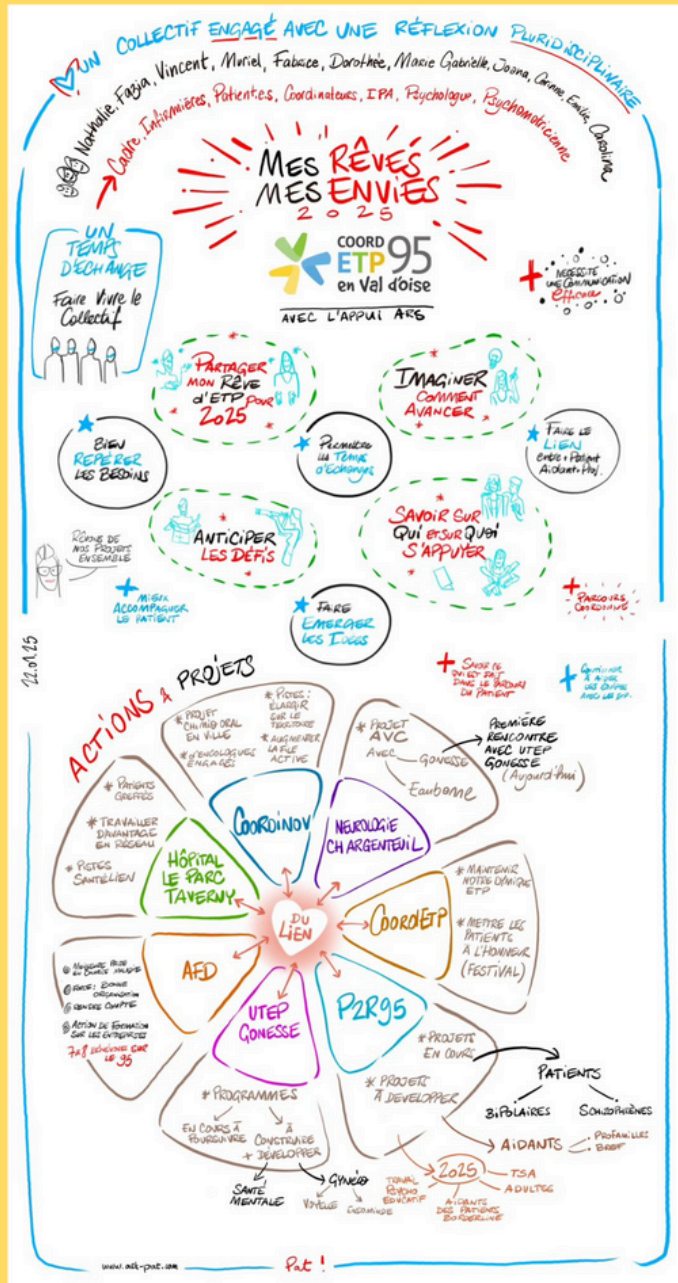 UN COLLECTIF ENGAGÉ AVEC UNE RÉFLEXION PLURIDISCIPLINAIRE
Nathalie, Fazia, Vincent, Muriel, Fabrice, Dorothée, Marie Gabrielle, Joana, Corinne, Emilie, Carolina
Cadre, Infirmières, Patient.e.s, Coordinateurs, IPA, Psychologue, Psychomotricienne
MES RÊVES
MES ENVIES
2025
UN
TEMPS
D'ÉCHANGE
Faire Vivre le
Collectif
COORD
ETP 95
en Val d'oise
AVEC L'APPUI ARS
+ NÉCESSITE
UNE COMMUNICATION
efficace
PARTAGER
MON RÊVE
d'ETP pour
2025
IMAGINER
COMMENT
AVANCER
BIEN
REPÉRER
LES BESOINS
PERMETTRE
les Temps
d'échanges
FAIRE LE
LIEN
entre Patient
Aidant Prof.
ANTICIPER
LES DÉFIS
SAVOIR SUR
QUI ET SUR QUOI
S'APPUYER
RÊVONS DE
NOS PROJETS
ENSEMBLE
+ MIEUX
ACCOMPAGNER
LE PATIENT
FAIRE
EMERGER
LES IDÉES
+ PARCOURS
COORDONNÉ
22.01.25
+ SAVOIR CE
QUI EST FAIT
DANS LE PARCOURS
DU PATIENT
+ CONTINUER
À AIDER
LES ÉQUIPES
AVEC LES
ACTIONS & PROJETS
* PROJET
CHIMIO ORAL
EN VILLE
* ENCOLOGUES
ENGAGÉS
* PISTES:
ÉLARGIR
SUR LE
TERRITOIRE
* AUGMENTER
LA FILE
ACTIVE
COORDINOV
* PROJET
AVC
AVEC GONESSE
Eaubonne
PREMIÈRE
RENCONTRE
AVEC UTEP
GONESSE
(Aujourd'hui)
NEUROLOGIE
CH ARGENTEUIL
* PATIENTS
GREFFÉS
* TRAVAILLER
DAVANTAGE
EN RÉSEAU
* PISTES
SANTÉLIEN
HÔPITAL
LE PARC
TAVERNY
DU
LIEN
COORDIETP
* MAINTENIR
NOTRE DYNAMIQUE
ETP
* METTRE LES
PATIENTS
À L'HONNEUR
(FESTIVAL)
AFD
MEILLEURE PRISE
EN CHARGE MALADIE
FORCE: BONNE
ORGANISATION
RENDRE COMPTE
ACTION DE FORMATION
SUR LES ENTREPRISES
7 à 8 BÉNÉVOLES SUR
LE 95
UTEP
GONESSE
P2R95
* PROJETS
EN COURS
* PROJETS
À DEVELOPPER
PATIENTS
BIPOLAIRES
SCHIZOPHRÈNES
AIDANTS
PROFAMILLES
BREF
* PROGRAMMES
EN COURS À
POURSUIVRE
À
CONSTRUIRE
+ DÉVELOPPER
SANTÉ
MENTALE
GYNÉCO
2025
TRAVAIL
PSYCHO
EDUCATIF
AIDANTS
DES PATIENTS
BORDERLINE
TSA
ADULTES
www.ask-pat.com
Pat !